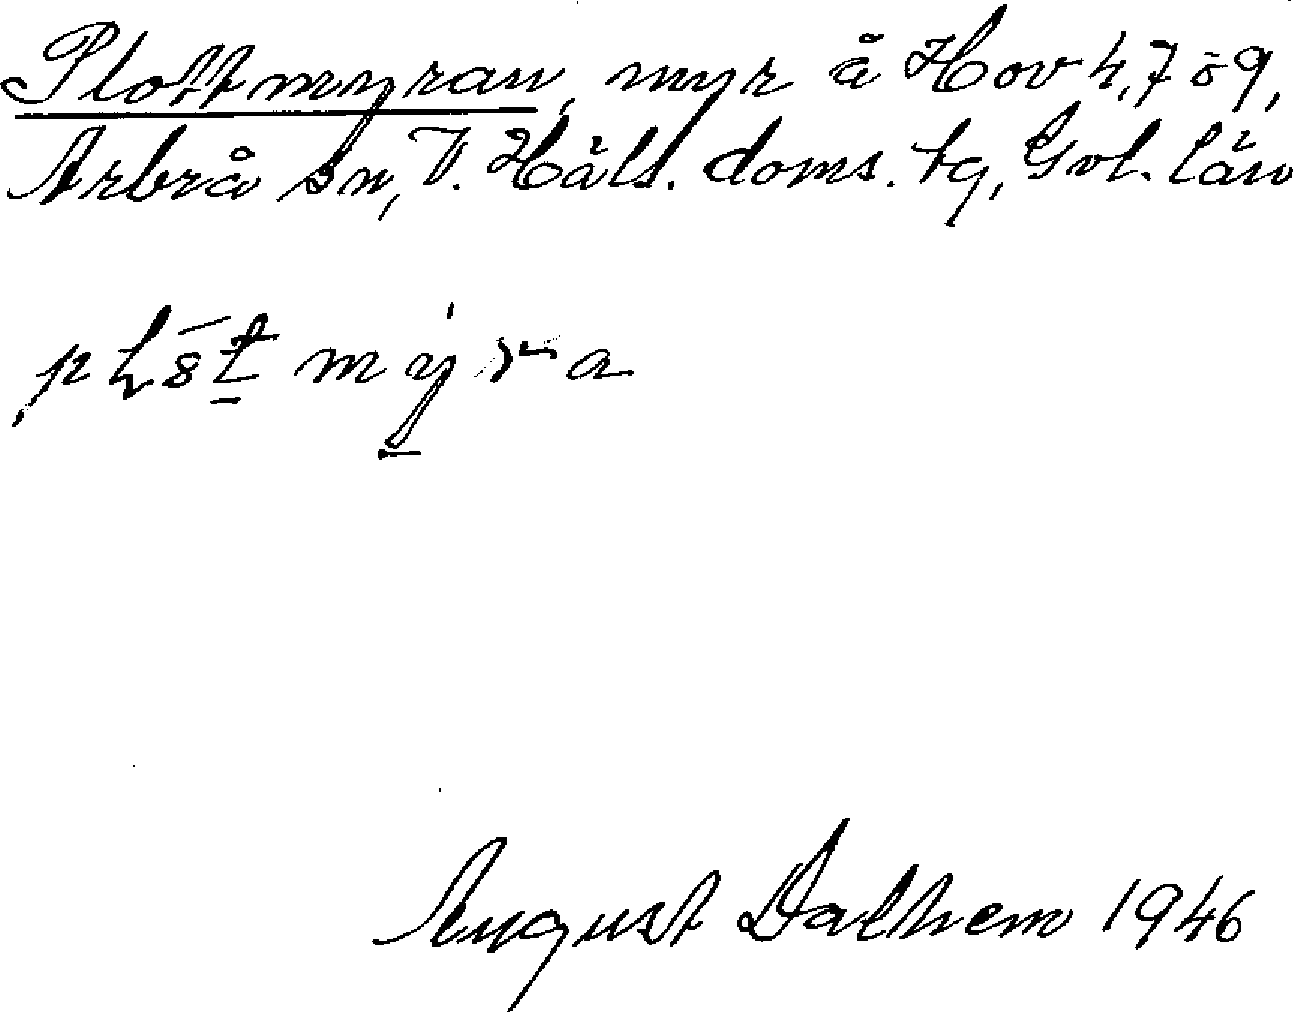 Plottmyran, myr å Hov 4,7 o 9,
Arbrå sn, V. Häls. doms. tg, Gvl. län
August Dalhem 1946